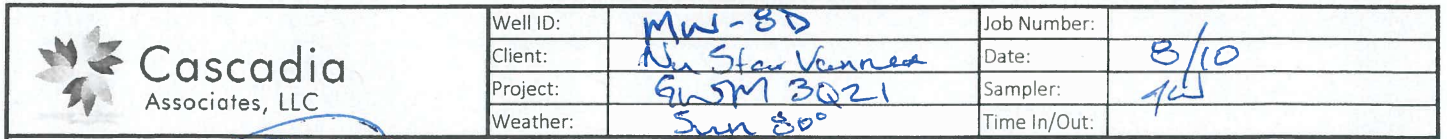 Cascadia
Associates, LLC
Well ID: MW-8D Job Number:
Client: NuStar Date: 8/10
Project: GWM 3Q21 Sampler:
Weather: Sun 80° Time In/Out: